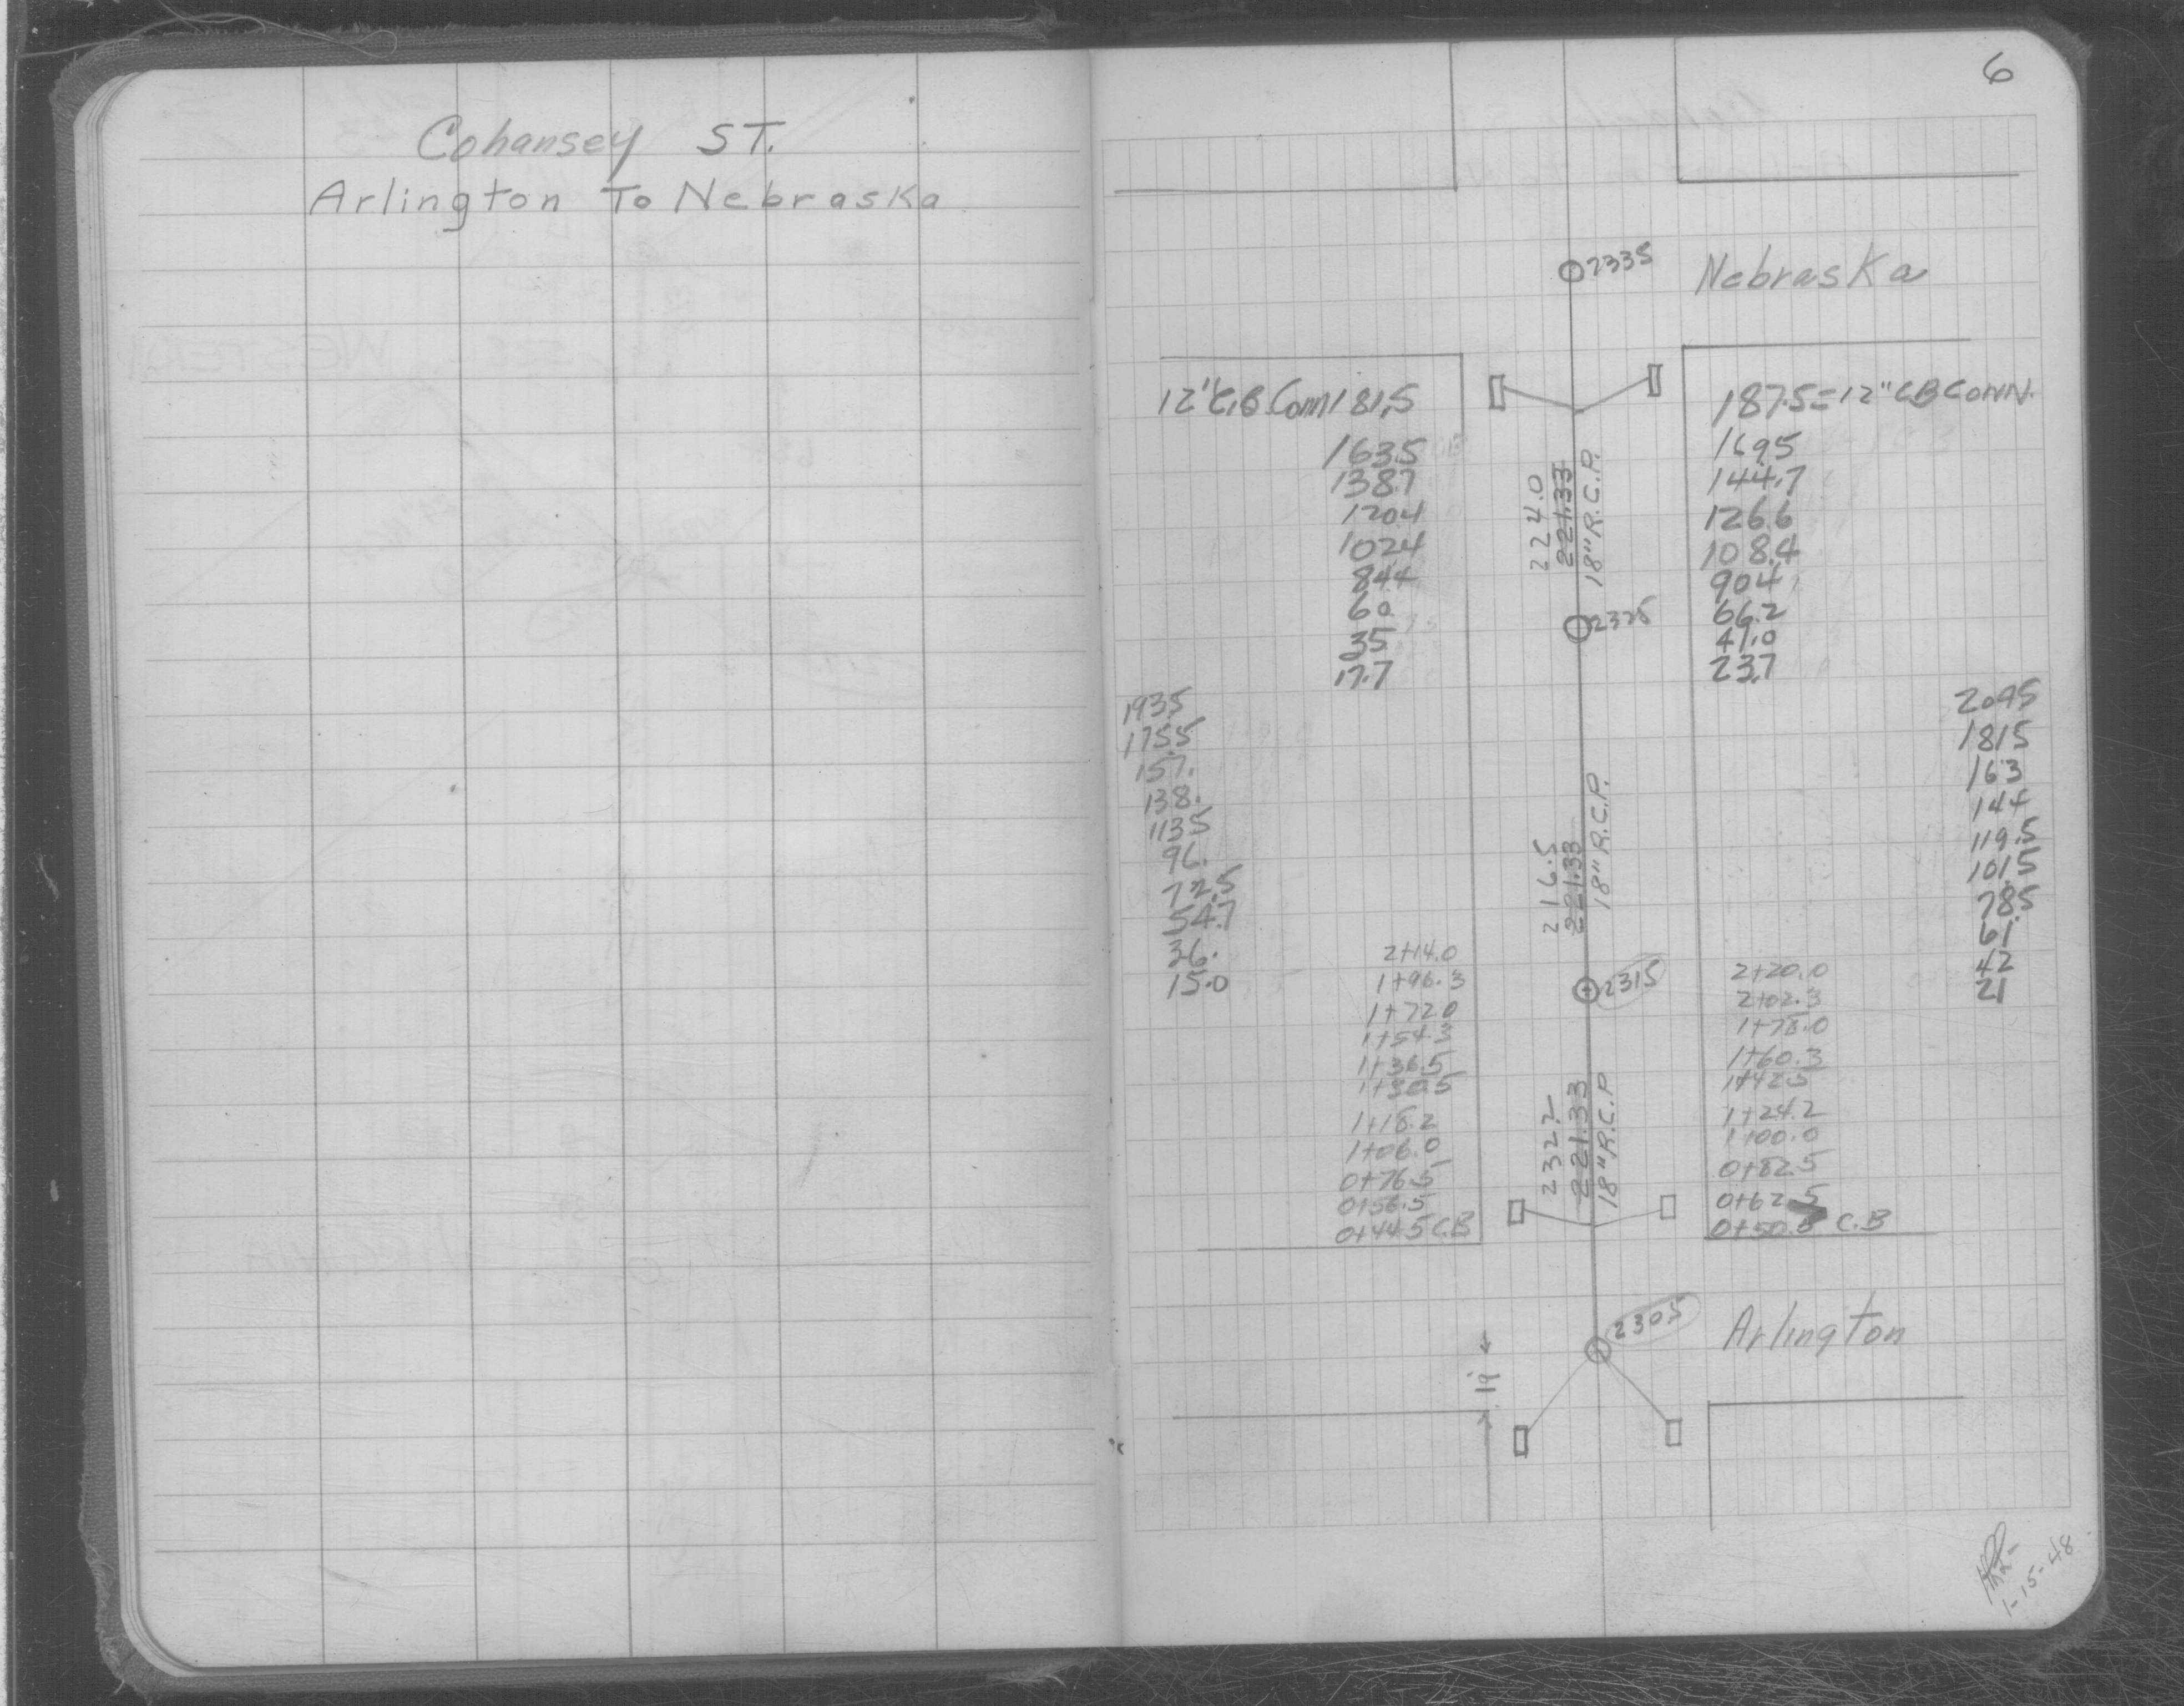 Cohansey ST.
Arlington To Nebraska
6
2335
Nebraska
12" C.B. Conn 181.5
163.5
138.7
120.4
102.4
84.4
60.
35
17.7
187.5 = 12" CB CONN.
169.5
144.7
126.6
108.4
90.4
66.2
41.0
23.7
224.0
221.33
18" R.C.P.
2325
193.5
175.5
157.
138.
113.5
96.
72.5
54.7
36.
15.0
181.5
163
144
119.5
101.5
78.5
61
42
21
216.5
221.33
18" R.C.P.
2315
2+14.0
1+96.3
1+72.0
1+54.3
1+36.5
1+30.5
1+18.2
1+06.0
0+76.5
0+56.5
0+44.5 C.B
2+20.0
2+02.3
1+78.0
1+60.3
1+42.5
1+24.2
1+00.0
0+82.5
0+62.5
0+50.5 C.B
232.2
221.33
18" R.C.P
2305
Arlington
19'
1-15-48